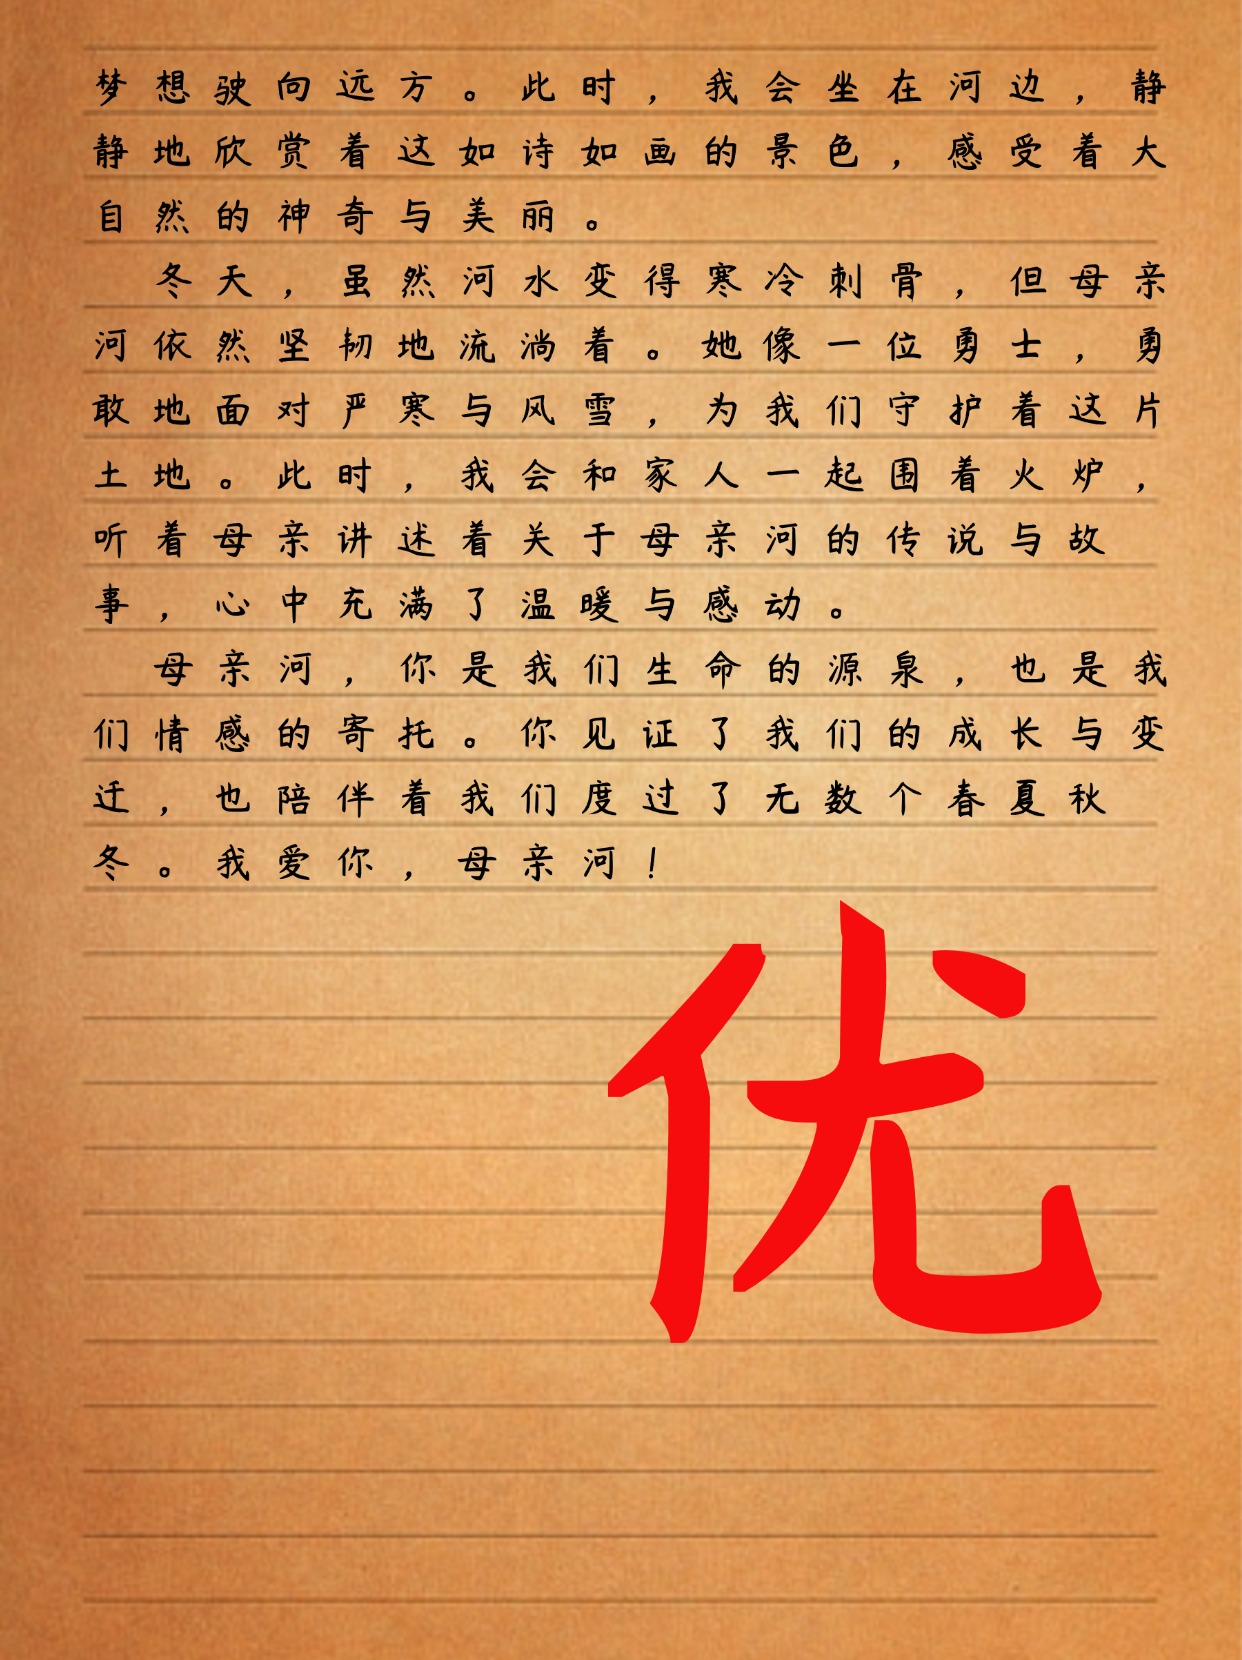 梦想驶向远方。此时，我会坐在河边，静
静地欣赏着这如诗如画的景色，感受着大
自然的神奇与美丽。
冬天，虽然河水变得寒冷刺骨，但母亲
河依然坚韧地流淌着。她像一位勇士，勇
敢地面对严寒与风雪，为我们守护着这片
土地。此时，我会和家人一起围着火炉，
听着母亲讲述着关于母亲河的传说与故
事，心中充满了温暖与感动。
母亲河，你是我们生命的源泉，也是我
们情感的寄托。你见证了我们的成长与变
迁，也陪伴着我们度过了无数个春夏秋
冬。我爱你，母亲河！
优